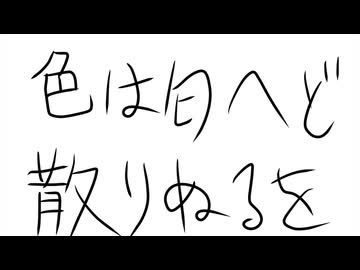 色は匂へど
散りぬるを